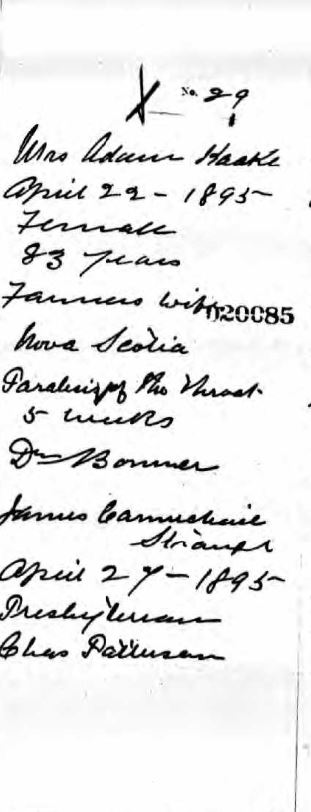 No. 29
Mrs Adam Haake
April 22 - 1895
Female
83 years
Farmers wife
020085
Nova Scotia
Paralysis of the Throat
5 weeks
Dr Bonner
James Carmichael
April 27 - 1895
Presbyterian
Chas Patterson